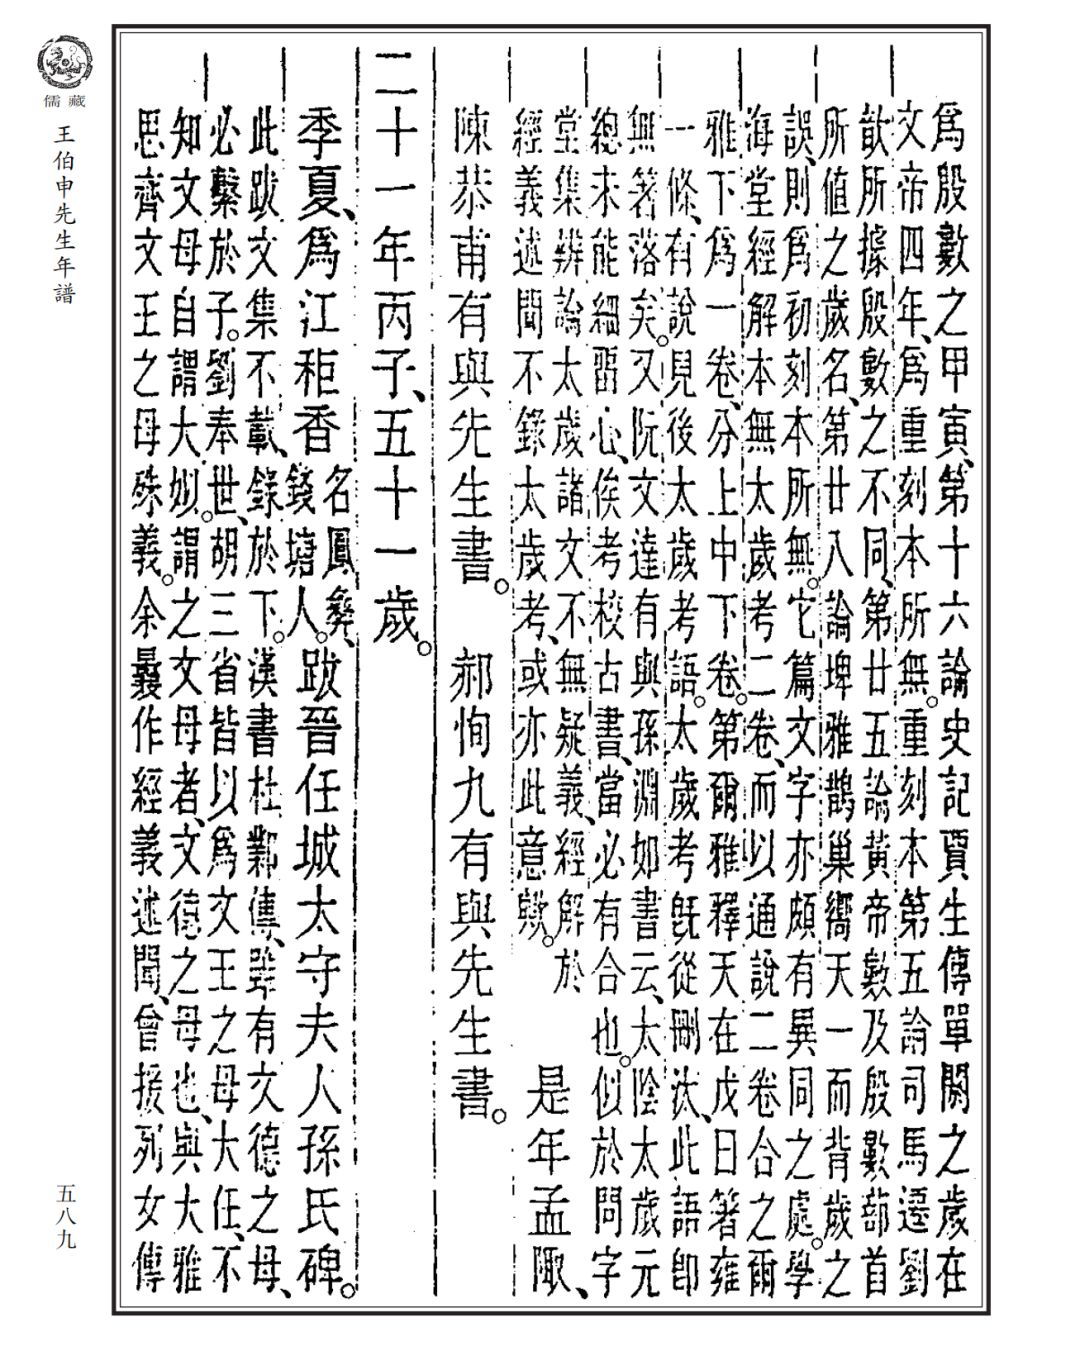 爲殷數之甲寅、第十六論史記賈生傳單閼之歲在
文帝四年、爲重刻本所無。重刻本第五論司馬遷劉
歆所據殷數之不同、第廿五論黃帝數及殷數蔀首
所值之歲名、第廿八論埤雅鵲巢嚮天一而背歲之
誤、則爲初刻本所無。它篇文字亦頗有異同之處。學
海堂經解本無太歲考二卷、而以通說二卷合之爾
雅下爲一卷、分上中下卷。第爾雅釋天在戊日著雍
一條、有說見後太歲考語。太歲考旣從刪汰、此語卽
無著落矣。又阮文達有與孫淵如書云、太陰太歲元
總未能細習心、俟考校古書、當必有合也。似於問字
堂集辨論太歲諸文不無疑義、經解於
經義述聞不錄太歲考、或亦此意歟。 是年孟陬、
陳恭甫有與先生書。 郝恂九有與先生書。
二十一年丙子、五十一歲。
季夏、爲江秬香名鳳彝、錢塘人。跋晉任城太守夫人孫氏碑。
此跋文集不載、錄於下。漢書杜鄴傳、雖有文德之母、
必繫於子。劉奉世、胡三省皆以爲文王之母大任、不
知文母自謂大姒。謂之文母者、文德之母也、與大雅
思齊文王之母殊義。余曩作經義述聞、曾援列女傳
儒藏
王伯申先生年譜
五八九